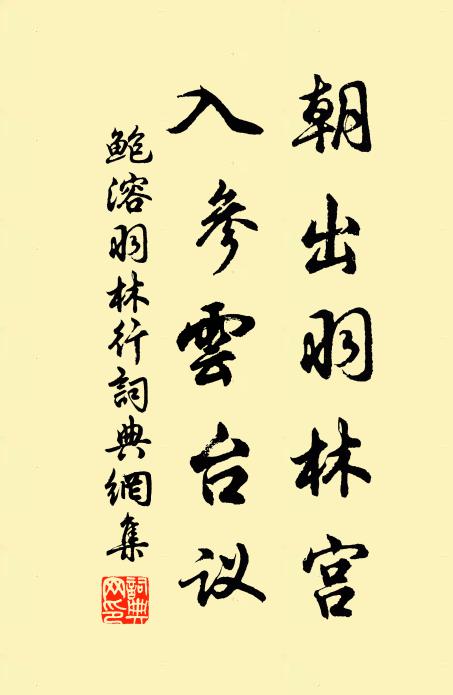 朝出羽林宫
入参雲台议
鲍溶羽林行詞典網集
詞典网印